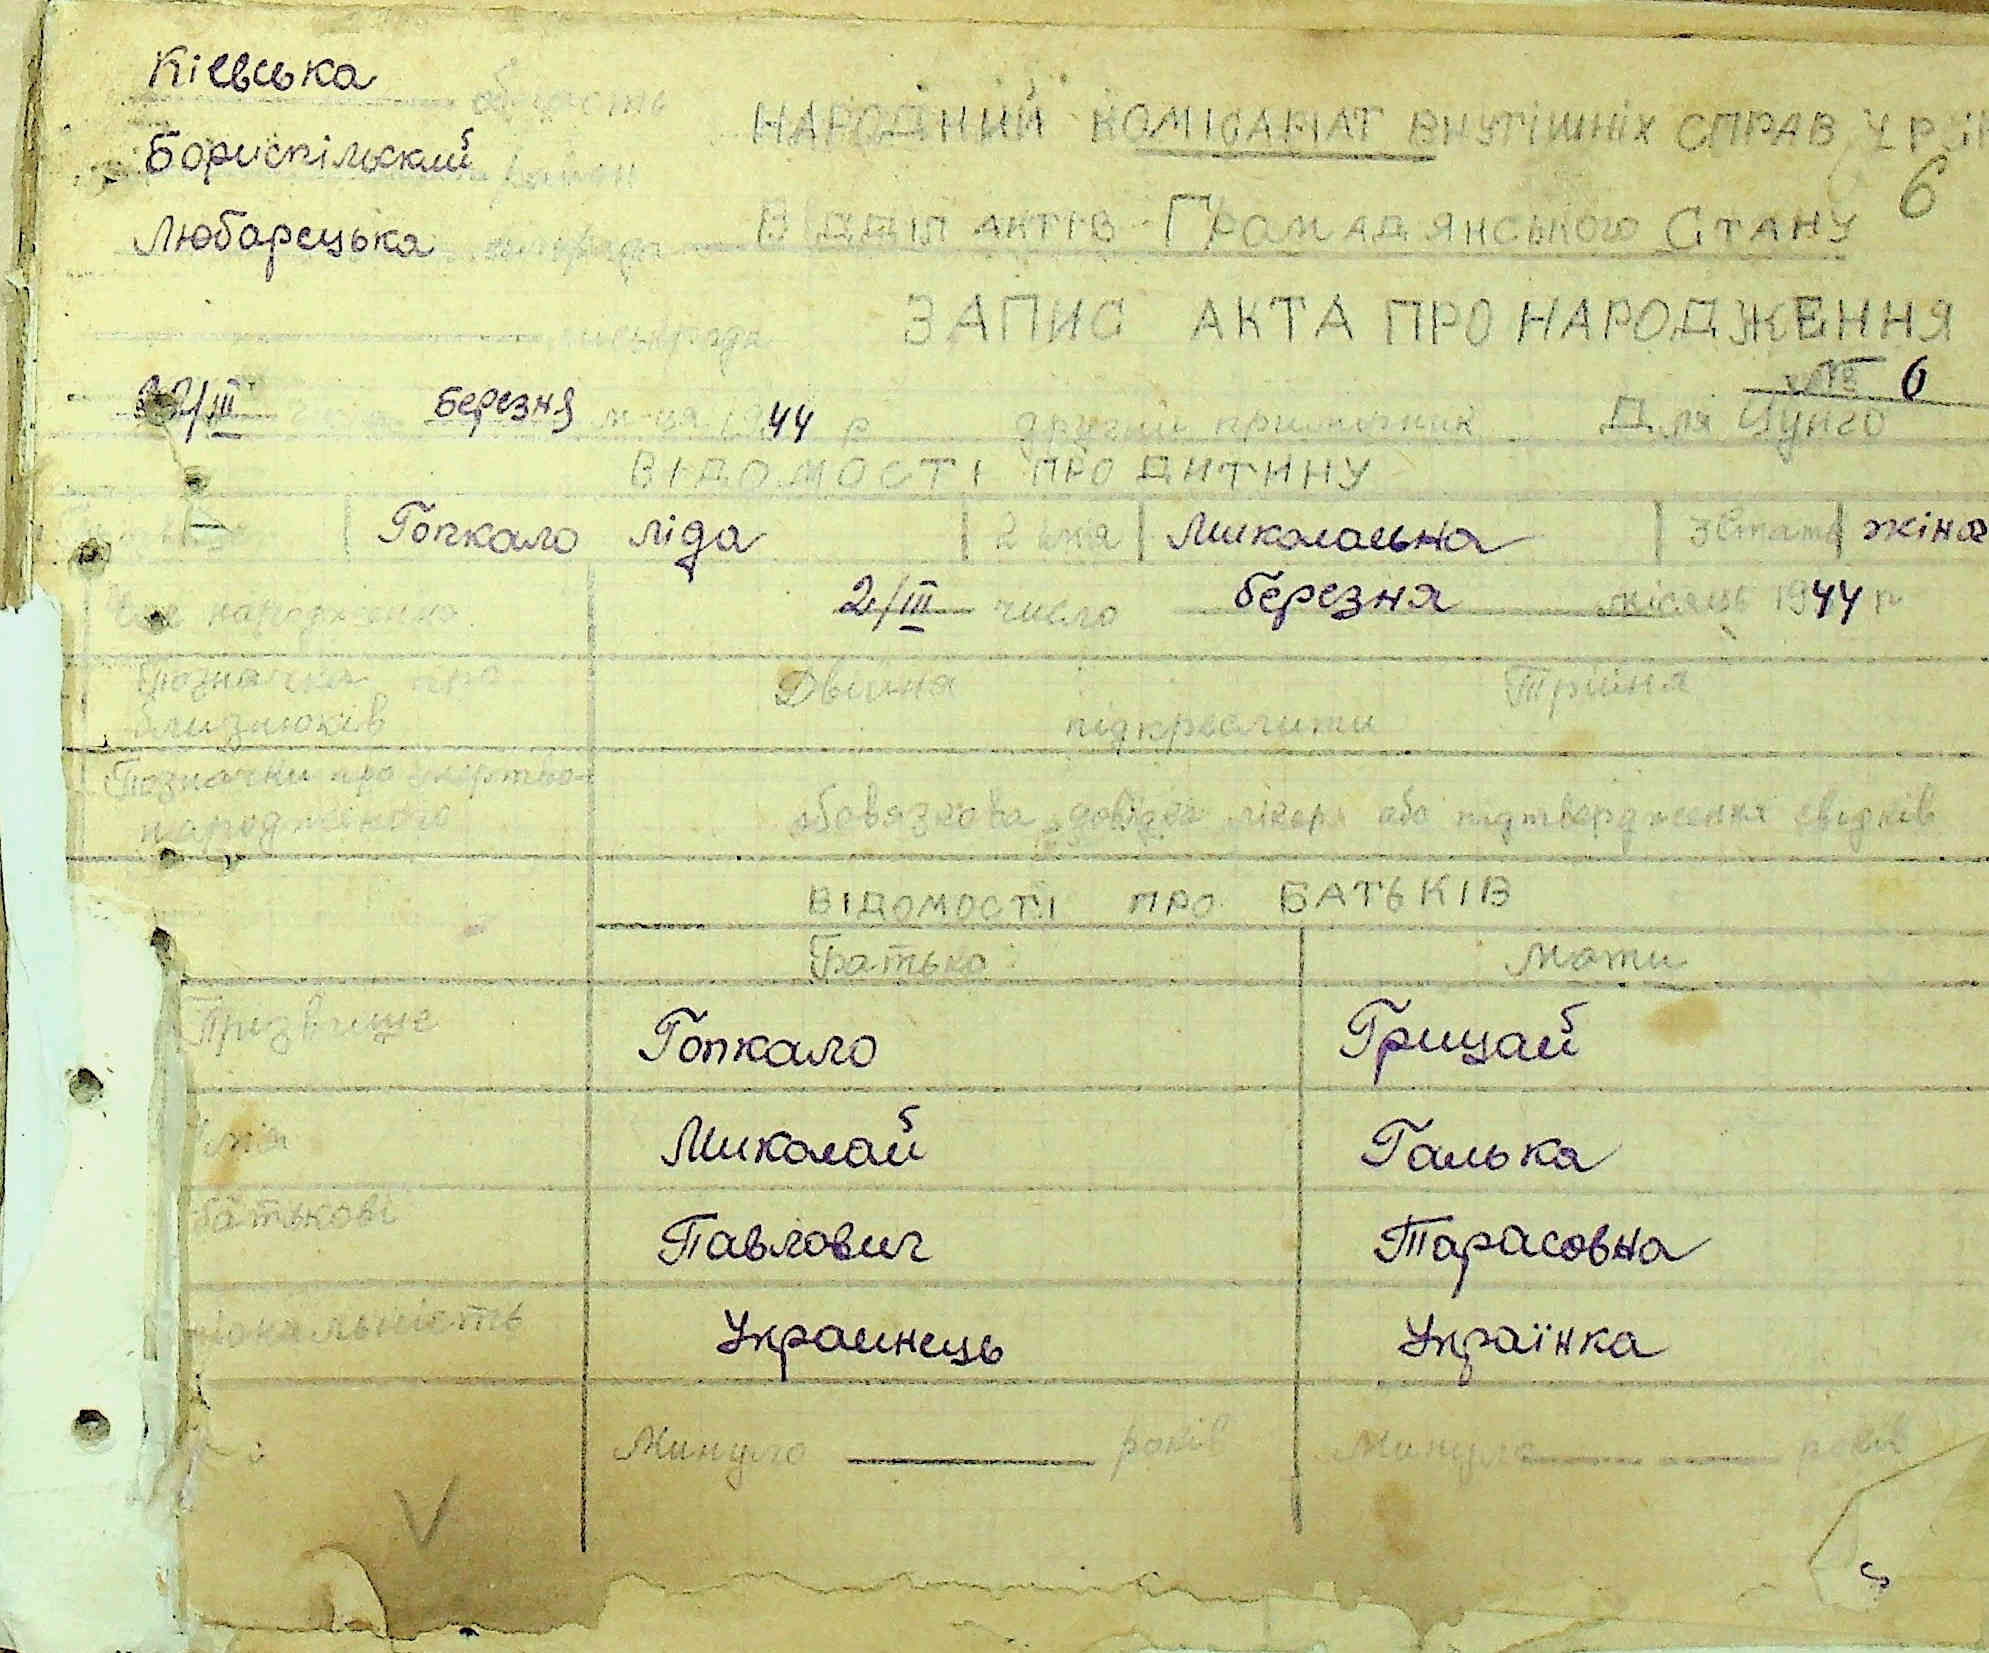 Кіевська область
НАРОДНИЙ КОМІСАРІАТ ВНУТІШНІХ СПРАВ УРСР
Бориспільский район
6
Любарецька сільрада
ВІДДІЛ АКТІВ ГРОМАДЯНСЬКОГО СТАНУ
ЗАПИС АКТА ПРО НАРОДЖЕННЯ
6
/III березня м-ця 1944 р другий примірник Для Цунго
ВІДОМОСТІ ПРО ДИТИНУ
Гопкало Ліда 2 імя Миколаевна 3 Стать жіноч
Час народження 2/III число березня місяць 1944 р
Позначка про близнюків Двійня Трійня
підкреслити
Позначки про мертво-
народженого обовязкова довідка лікаря або підтвердження свідків
ВІДОМОСТІ ПРО БАТЬКІВ
Батько Мати
Призвище Гопкало Грицай
імя Миколай Галька
батькові Павлович Тарасовна
ціональність Украинець Українка
Минуло років Минуло років